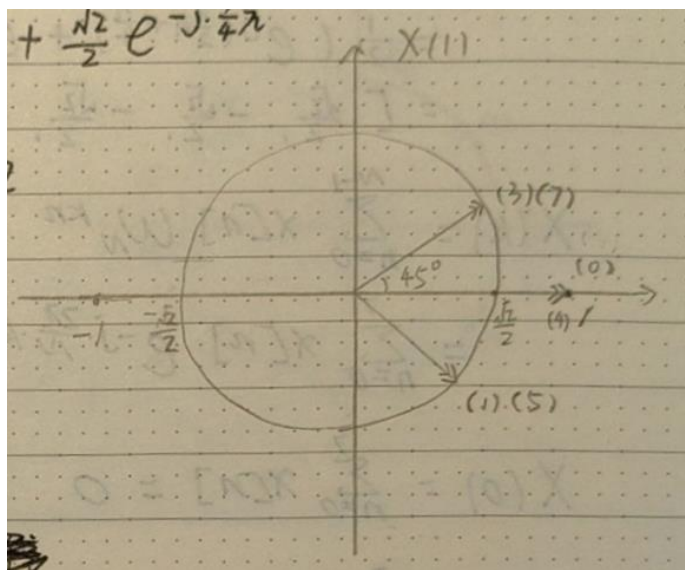 + √2/2 e^{-j·1/4π}
X(1)
(3)(7)
45°
(0)
-1
-√2/2
√2/2
(4) 1
(1).(5)